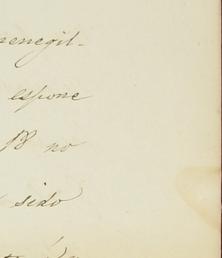 menegil-
espone
18 no
sido